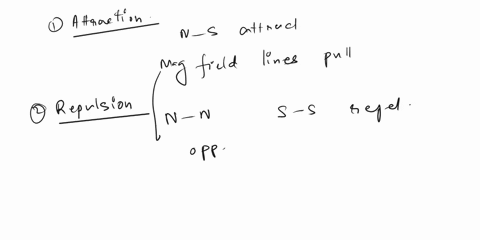 ① Attraction. N-S attract
Mag field lines pull
② Repulsion N-N S-S repel.
opp.